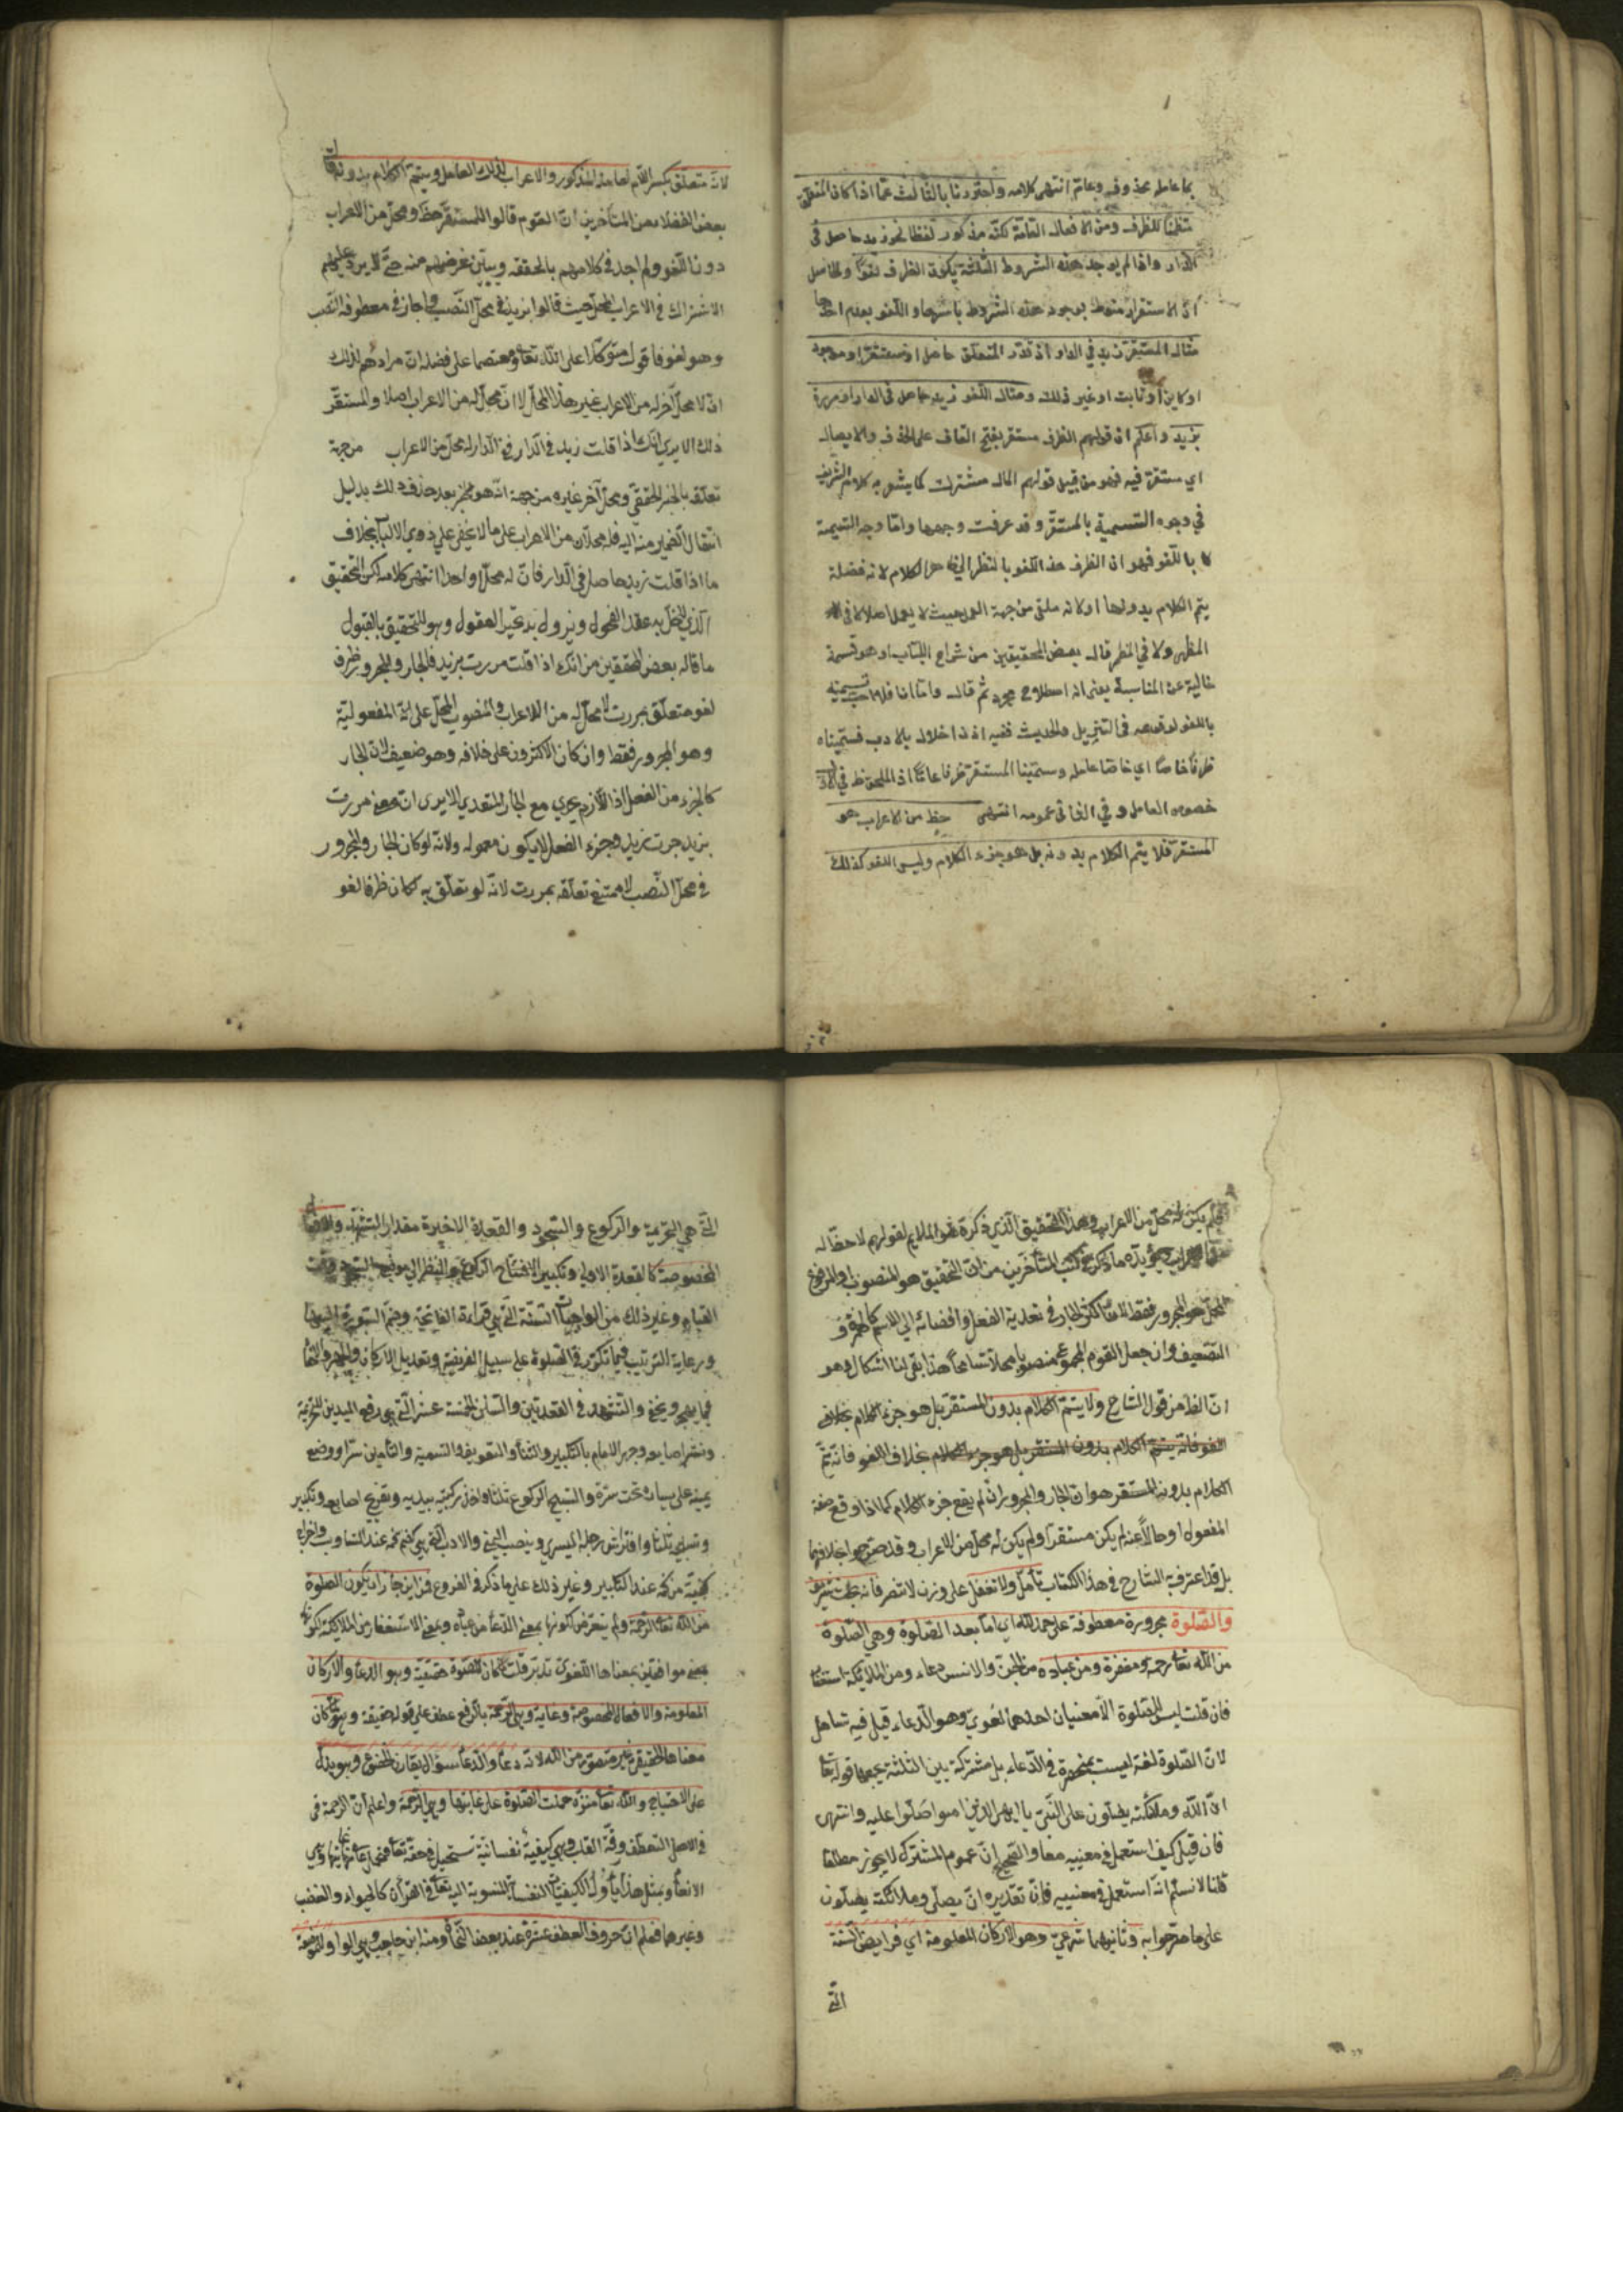 بما عامله محذوف وعام انتهى كلامه واحترزنا بالثالث عما اذا كان المتعلق
متضمنا للظرف ومن الافعال العامة لكنه مذكور لفظا نحو زيد حاصل فى
الدار واذا لم يوجد هذه الشروط الثلثة يكون الظرف لغوا والحاصل
ان الاستقرار منوط بوجود هذه الشروط باسرها واللغو بعدم احدها
مثال المستقر زيد فى الدار اذ تقدر المتعلق حاصل او مستقر او موجود
او كاين او ثابت او غير ذلك ومثال اللغو زيد حاصل فى الدار او مررت
بزيد واعلم ان قولهم الظرف مستقر بفتح القاف على الحذف والايصال
اى مستقر فيه فهو من قبيل قولهم المال مشترك كما يشعر به كلام الشريف
في وجوه التسمية بالمستقر وقد عرفت وجهها واما وجه التسمية
باللغو فهو ان الظرف هذا اللغو بالنظر الى الكلام لانه فضلة
يتم الكلام بدونها او لانه ملغى من جهة العمل بحيث لا يعمل اصلا لا فى
المظهر ولا في المضمر قال بعض المحققين من شراح اللباب او هو تسمية
خالية عن المناسبة يعنى انه اصطلاح مجرد ثم قال واما انا فلا احب تسميته
باللغو لوقوعه فى التنزيل والحديث ففيه اذا اخلال بالادب فسميناه
ظرفا خاصا اي خاصا عامله وسمينا المستقر ظرفا عاما اذ الملحوظ في الاول
خصوص العامل و في الثانى عمومه انتهى حظ من الاعراب هو
المستقر فلا يتم الكلام بدونه بل هو جزء الكلام وليس اللغو كذلك
لانه متعلق بكسر اللام لعامله المذكور والاعراب لذلك العامل ويتم الكلام بدونه قال
بعض الفضلاء من المتأخرين ان القوم قالوا للمستقر حظ ومحل من الاعراب
دون اللغو ولم اجد في كلامهم بالحققه ويبين غرضهم منه حتى لا يرد عليهم
الاشتراك في الاعراب المحل حيث قالوا بزيد في محل النصب واجاز في معطوفه النصب
وهو لغو فاقول متوكلا على الله تعالى ومعتصما على فضله ان مرادهم لذلك
ان لا محل آخر له من الاعراب غير هذا المحل لا انه لا محل له من الاعراب اصلا والمستقر
ذلك الا يرى انك اذا قلت زيد في الدار في الدار له محل من الاعراب من جهة
تعلقه بالخبر الحقيقي ومحل آخر غيره من جهة انه هو مخبر بعد حذف ذلك بدليل
انتقال الضمير منه اليه فله محلان من الاعراب على ما لا يخفى على ذوي الالباب بخلاف
ما اذا قلت زيد حاصل في الدار فان له محلا واحدا انتهى كلامه لكن التحقيق
الذي ينحل به عقد الفحول ويزول به تحير العقول وهو للتحقيق بالقبول
ما قاله بعض المحققين من انك اذا قلت مررت بزيد فالجار والمجرور ظرف
لغو متعلق بمررت لا محل له من الاعراب والمنصوب المحل على انه المفعولية
وهو المجرور فقط وان كان الاكثرون على خلافه وهو ضعيف لان الجار
كالجزء من الفعل اذ اللازم يجري مع الجار المتعدي الا يرى ان معنى مررت
بزيد جزت بزيد وجزء الفعل لا يكون معموله ولانه لو كان الجار والمجرور
في محل النصب لامتنع تعلقه بمررت لانه لو تعلق به كان ظرفا لغو
فلم يكن له محل من الاعراب وهذا التحقيق الذي ذكره هو الملايم لقولهم لا حظ له
من الاعراب ويؤيده ما ذكر في كتب المتأخرين من ان التحقيق هو المنصوب او المرفوع
المحل هو المجرور فقط لكن الجار في تعدية الفعل وافضائه الى الاسم كالهمزة و
التضعيف وان جعل القوم المجموع منصوبا محلا تسامحا هذا بقي لنا اشكال وهو
ان الظ من قول الشارح ولا يتم الكلام بدون المستقر بل هو جزء الكلام بخلاف
اللغو فانه يتم الكلام بدون المستقر بل هو جزء الكلام بخلاف اللغو فانه يتم
الكلام بدونه المستقر هو ان الجار والمجرور ان لم يقع جزء الكلام كما اذا وقع صفة
المفعول او حالا عنه لم يكن مستقرا ولم يكن له محل من الاعراب وقد صرحوا بخلافهما
بل قد اعترف به الشارح في هذا الكتاب تأمل ولا تغفل على وزن لا تنصر فانه بحث شريف
والصلوة مجرورة معطوفة على حمد لله اى اما بعد الصلوة وهي الصلوة
من الله تعا رحمة ومغفرة ومن عباده من الجن والانس دعاء ومن الملائكة استغفار
فان قلت ليس للصلوة الا معنيان احدهما لغوي وهو الدعاء قيل فيه تساهل
لان الصلوة لغة ليست بمنحصرة في الدعاء بل مشتركة بين الثلثة يجمعها قوله تعا
ان الله وملئكته يصلون على النبى يا ايها الذين امنوا صلوا عليه وانتهى
فان قيل كيف استعمل في معنييه معا والصحيح ان عموم المشترك لا يجوز مطلقا
قلنا لا نسلم انه استعمل في معنييه فان تقديره ان يصلى وملائكته يصلون
على ما صرحوا به وثانيهما شرعى وهو الاركان المعلومة اي فرايضه الستة
التى
التي هي التحريمة والركوع والسجود والقعدة الاخيرة مقدار التشهد والافعال
المخصوصة كالقعدة الاولى وتكبير الافتتاح الركوع والنظر الى موضع السجود وقت
القيام وغير ذلك من الواجبات الستة التى هى قراءة الفاتحة وضم السورة اليها
ورعاية الترتيب فيما تكرر في الصلوة على سبيل الفرضية وتعديل الاركان والجهر والاخفاء
فيما يجهر ويخفى والتشهد في القعدتين والسنن الخمسة عشر التى هى رفع اليدين للتحريمة
ونشر اصابعه وجهر الامام بالتكبير والثناء والتعويذ والتسمية والتأمين سرا ووضع
يمينه على يساره تحت سرته والتسبيح الركوع ثلثا واخذ ركبتيه بيديه وتفريج اصابعه وتكبير
وتسبيحه ثلثا وافتراش رجله اليسرى ونصب اليمنى والادب التى هى كظم فمه عند التثاوب واخراج
كفيه من كمه عند التكابير وغير ذلك على ما ذكر في الفروع فمن اين جاز ان يكون الصلوة
من الله تعا الرحمة ولم يتعرض لكونها بمعنى الدعاء من عباده وبمعنى الاستغفار من الملائكة لكونه
بمعنى موافقين بمعناها اللغوى تدبر قلت لما كان للصلوة حقيقة وهو الدعاء والاركان
المعلومة والافعال المخصوصة وغاية وهى الرحمة بالرفع عطف على قوله حقيقة وهو كان
معناها الحقيقى غير متصور من الله لانه دعاء والدعاء سؤال يقارن الخضوع وهو يدل
على الاحتياج والله تعا منزه حملت الصلوة على غايتها وهى الرحمة واعلم ان الرحمة فى
فى الاصل التعطف ورقة القلب وهى كيفية نفسانية تستحيل في حقه تعا فتحمل على غايتها وهى
الانعام وبمثل هذا يأول الكيفيات النفسانية المنسوبة اليه تعا في القرآن كالحياء والغضب
وغيرهما فعلم ان حروف العطف عشرة عند بعض النحاة ومنه ابن حاجب وهى الواو